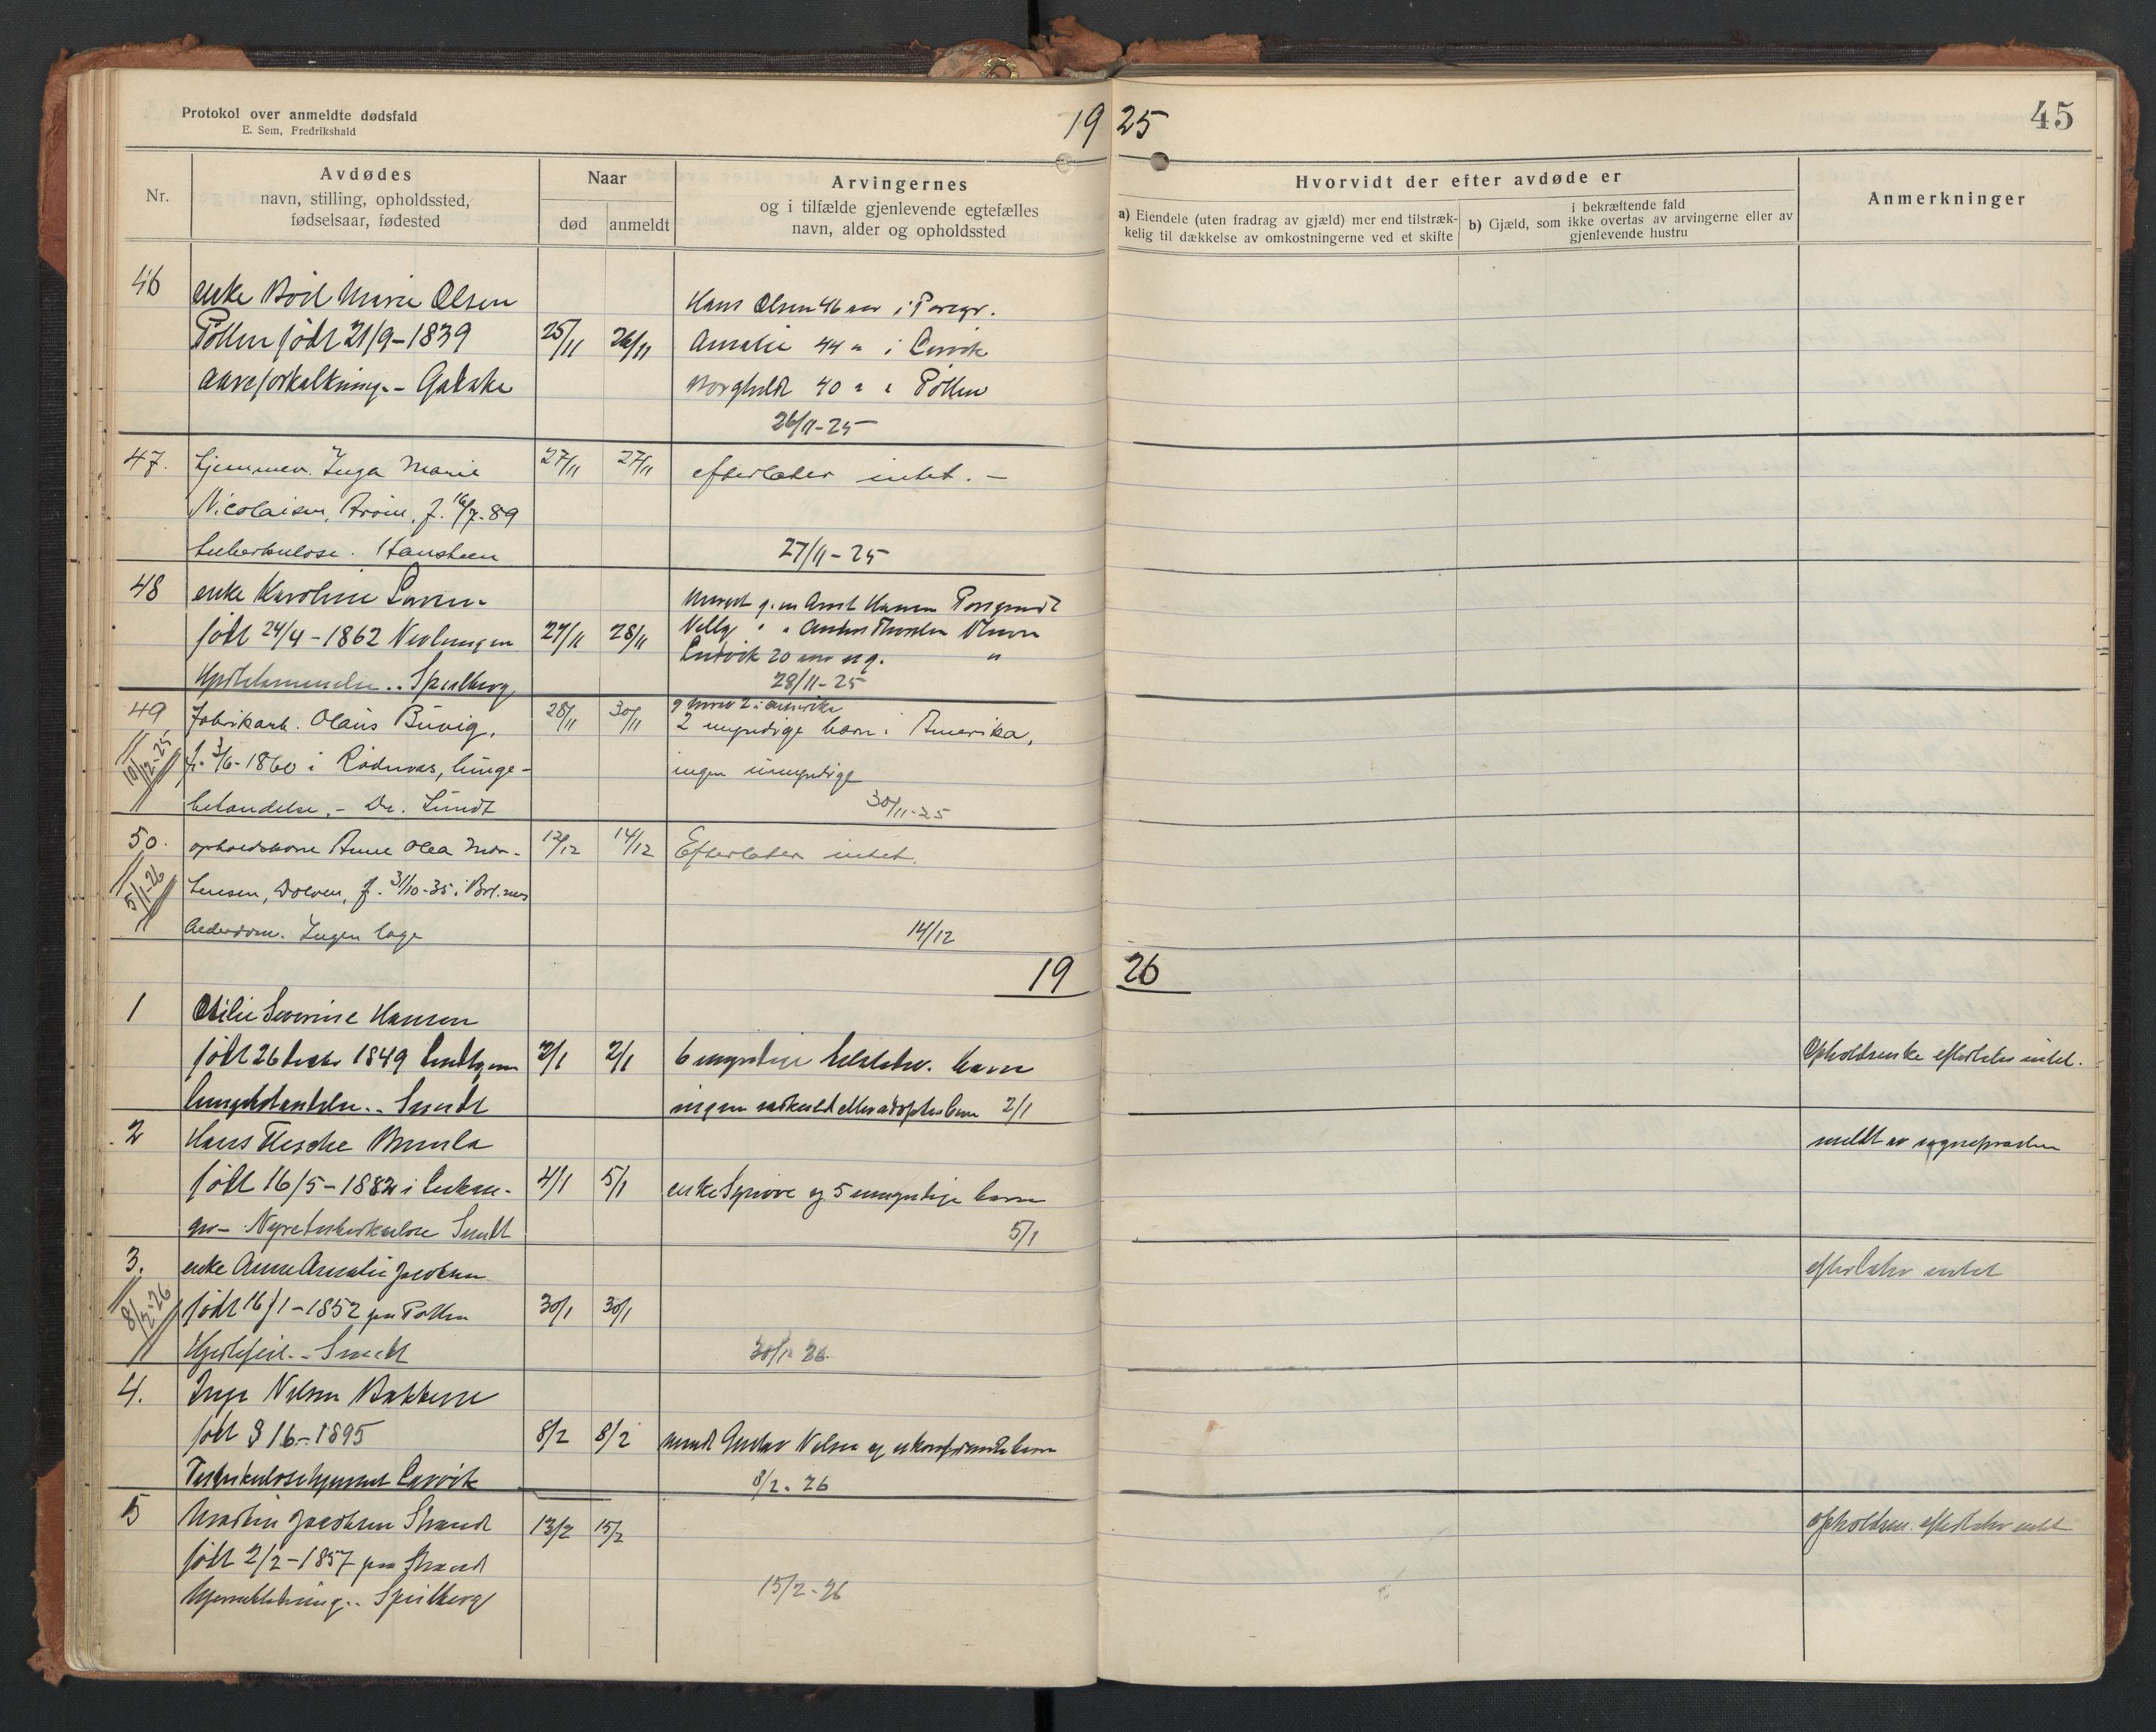 Protokol over anmeldte dødsfald
E. Sem, Fredrikshald
19 25
45
Nr.
Avdødes
navn, stilling, opholdssted,
fødselsaar, fødested
Naar
død
anmeldt
Arvingernes
og i tilfælde gjenlevende egtefælles
navn, alder og opholdssted
Hvorvidt der efter avdøde er
a) Eiendele (uten fradrag av gjæld) mer end tilstræk-
kelig til dækkelse av omkostningerne ved et skifte
i bekræftende fald
b) Gjæld, som ikke overtas av arvingerne eller av
gjenlevende hustru
Anmerkninger
46
enke Marie Olsen
født 21/9-1839 25/11 26/11
Aareforkalkning.-
Hans Olsen 46 aar i Porsgr.
Amalie 44 " i Larvik
Borghild 40 " "
26/11-25
47. Hjemmev. Inga Marie 27/11 27/11 efterlater intet. -
Nicolaisen, f. 16/7-89
tuberkulose. Hansteen 27/11-25
48 enke Karoline
født 24/4-1862 Nevlungen 27/11 28/11
Hjertelammelse.. Spielberg
g.m. Hansen Porsgrund
Nelly " "
Ludvik 20 aar ug. "
28/11-25
49 Fabrikarb. Olaus Buvig, 28/11 30/11
2 i Amerika
2 myndige barn i Amerika,
10/12-25
f. 3/6-1860 i Rødnæs, lunge- ingen umyndige
betændelse. - Dr. Lundt 30/11-25
50. opholdskone Anne Olea Mor- 12/12 14/12 Efterlater intet.
5/1-26
tensen, Dolven, f. 31/10-35 i
Alderdom. Ingen læge 14/12
19 26
1 Otilie Severine Hansen
født 26 1849 2/1 2/1 6 myndige barn
Opholdsenke efterlater intet.
Lungebetændelse.. Lundt ingen 2/1
2 Hans Brunla
meldt av sogneprästen
født 16/5-1882 i 4/1 5/1 enke og 5 umyndige barn
Nyretuberkulose Lundt 5/1
3. enke Anne Amalie Jacobsen
efterlater intet
8/2-26
født 16/1-1852 paa 30/1 30/1
Hjertefeil.. Lundt 30/1-26.
4. Inga Nilsen Bakkene
født 1895 8/2 8/2 mand Gustav Nilsen og
Tuberkulosehjemmet Larvik 8/2-26
5 Jacobsen Strand 13/2 15/2
efterlater intet
født 2/2-1857 paa Strand
Spielberg 15/2-26